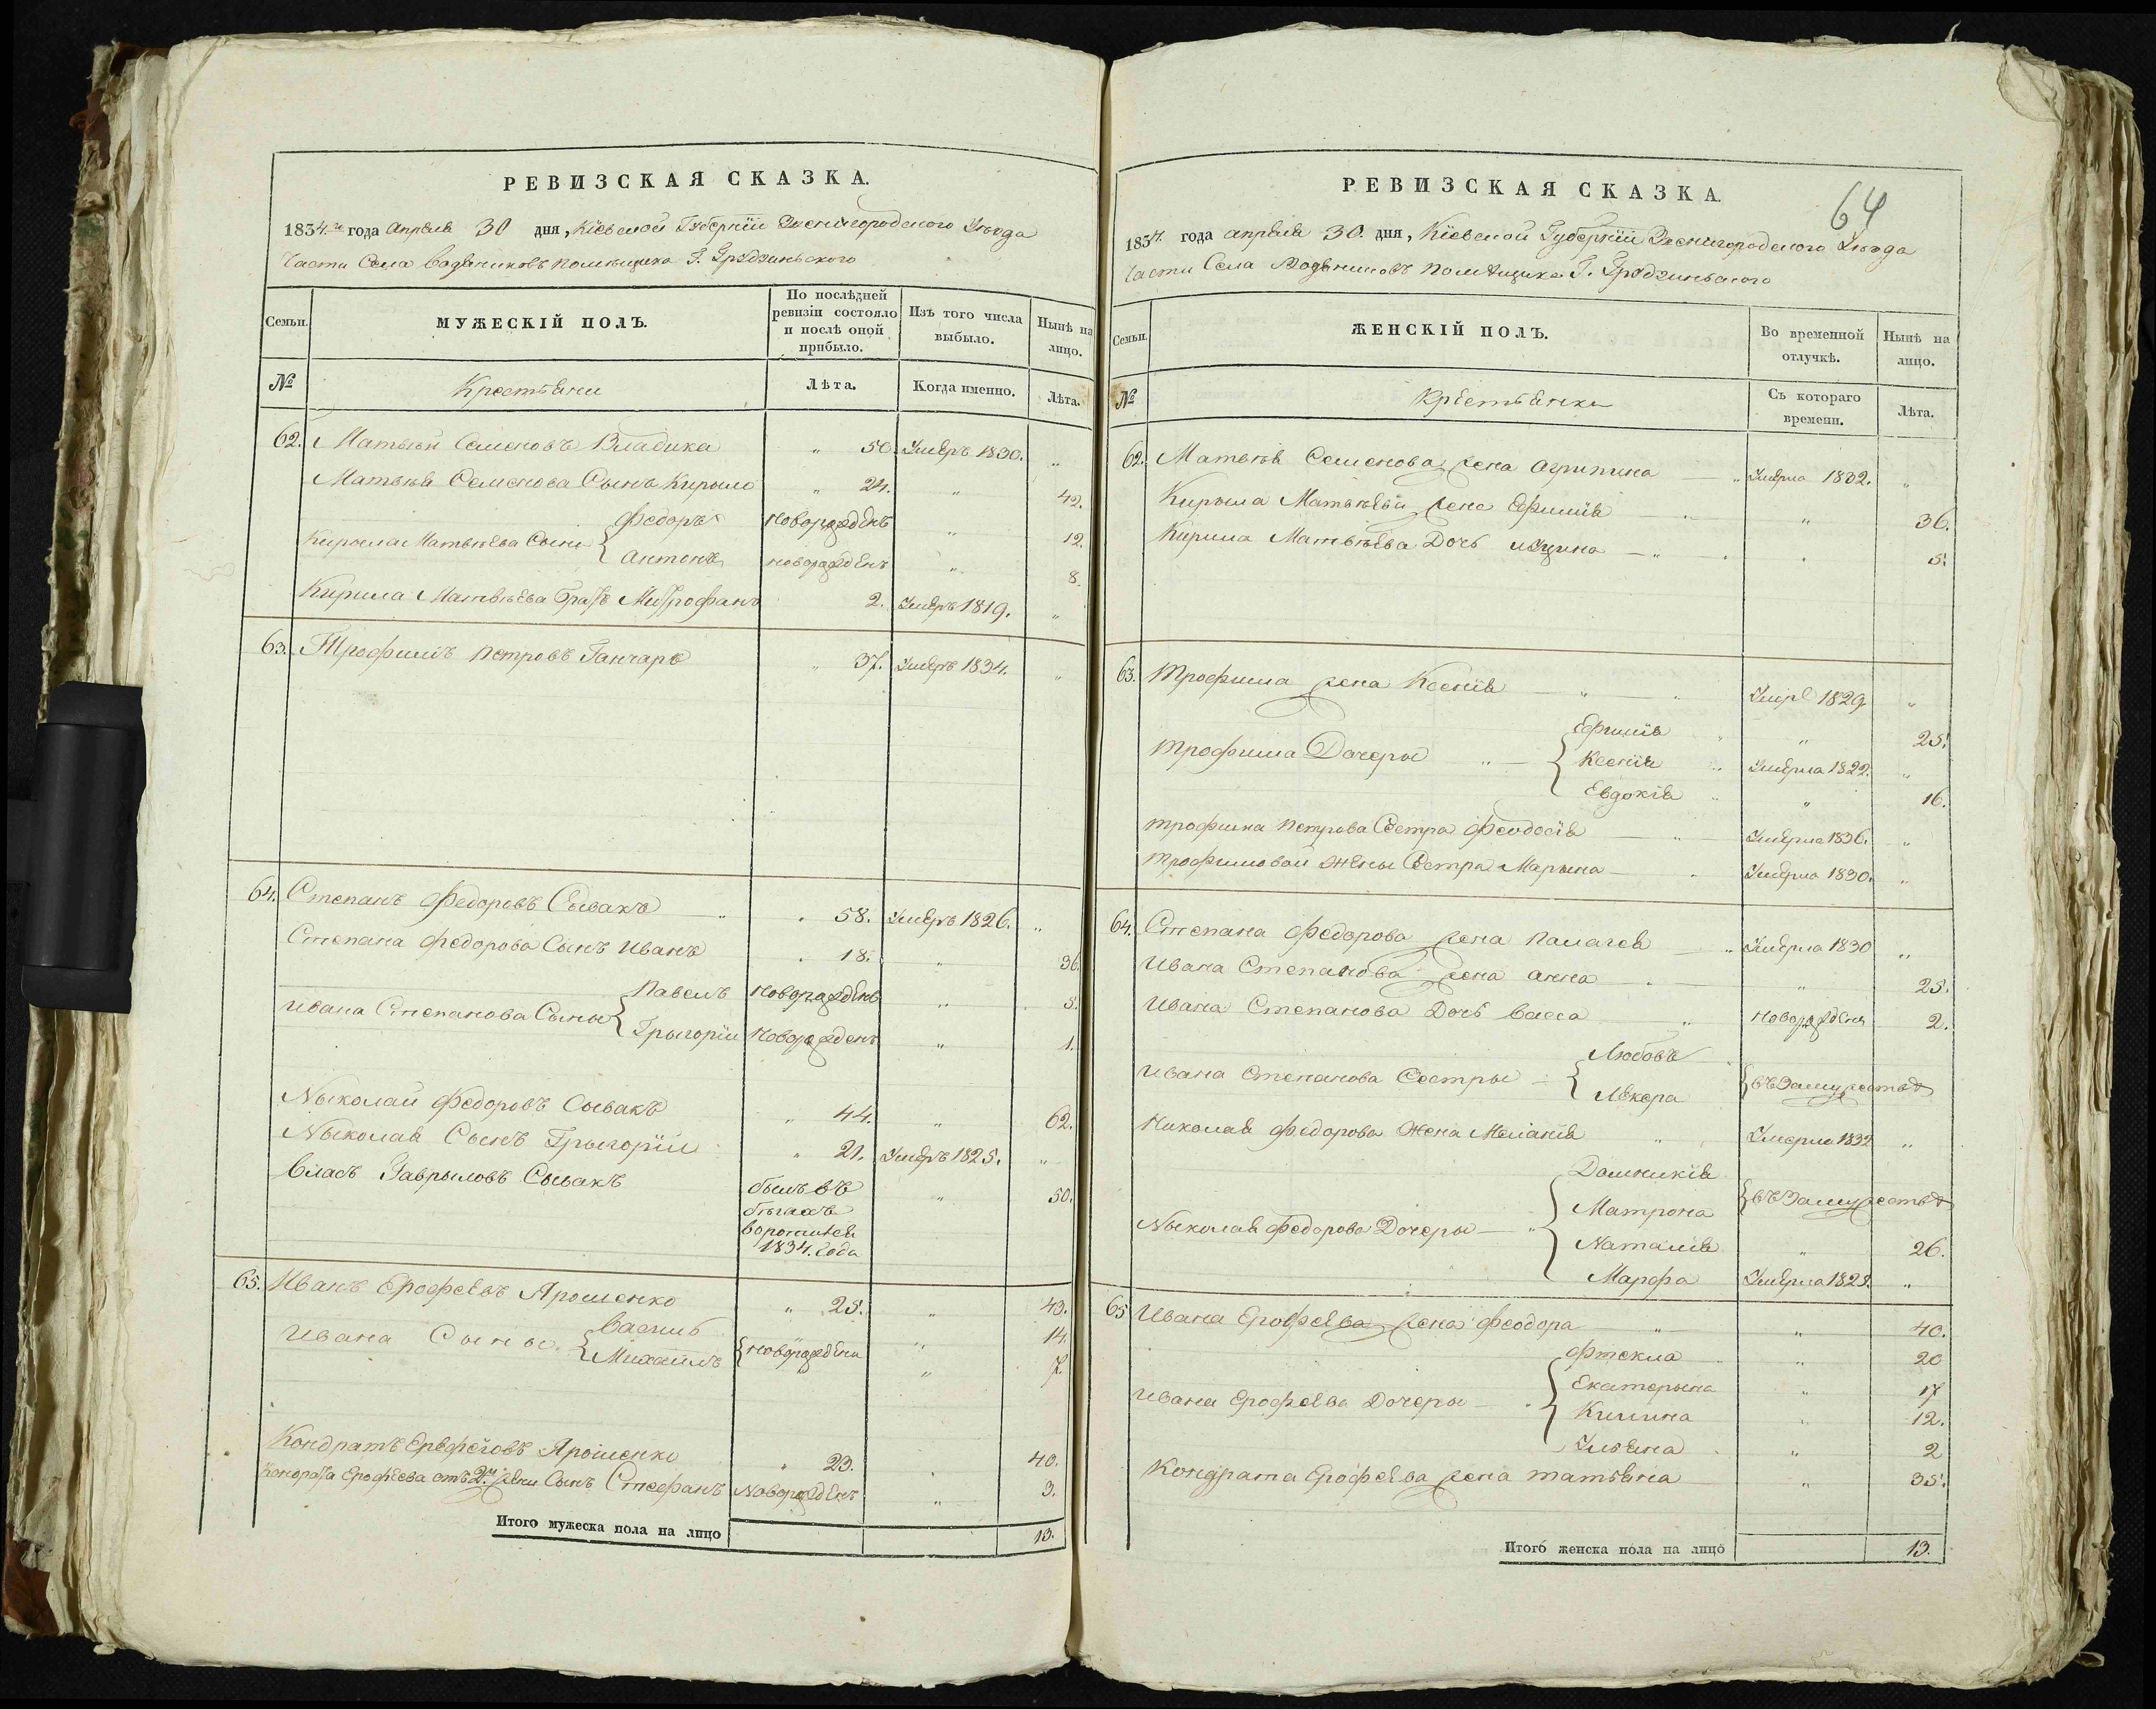 РЕВИЗСКАЯ СКАЗКА.
1834.го года Апреля 30 дня, Кіевской Губерніи Звенигородского Уезда
Части Села Водяниковъ помещика Г. Грудзинского
Семьи.
МУЖЕСКІЙ ПОЛЪ.
По послѣдней ревизіи состояло и послѣ оной прибыло.
Изъ того числа выбыло.
Нынѣ на лицо.
№
Крестьяни
Лѣта.
Когда именно.
Лѣта.
62. Матвѣй Семеновъ Владика " 50. Умеръ 1830. "
Матвѣя Семенова Сынъ Кирыло " 24. " 42.
Кирыла Матвѣева Сыни { Федоръ новорожденъ " 12.
Антонъ новорожденъ " 8.
Кирила Матвѣева братъ Митрофанъ 2. Умеръ 1819. "
63. Трофимъ Петровъ Ганчаръ " 37. Умеръ 1834. "
64. Степанъ Федоровъ Сывакъ " 58. Умеръ 1826. "
Степана Федорова Сынъ Иванъ " 18. " 36.
Ивана Степанова Сыны { Павелъ новорожденъ " 5.
Грыгоріи Новорожденъ " 1.
Ныколай Федоровъ Сывакъ " 44. " 62.
Ныколая Сынъ Грыгоріи " 21. Умеръ 1825. "
Власъ Гаврыловъ Сывакъ былъ въ " 50.
бѣгахъ
воротился
1834. года
65. Иванъ Ерофеевъ Ярошенко " 25. " 43.
Ивана Сыны { Василь { новорождени " 14.
Михаилъ " 7
Кондратъ Ерефеговъ Ярошенко " 23. " 40.
Кондрата Ерофеева отъ 2й жени Сынъ Стефанъ Новорожденъ " 3.
Итого мужеска пола на лицо 13.
64
РЕВИЗСКАЯ СКАЗКА.
1834. года апреля 30. дня, Кіевской Губерніи Звенигородского Уезда
Части Села Водяниковъ помѣщика Г. Грудзинского
Семьи.
ЖЕНСКІЙ ПОЛЪ.
Во временной отлучкѣ.
Нынѣ на лицо.
№
Крестьянки
Съ котораго времени.
Лѣта.
62. Матвѣя Семенова жена Агрипина " Умерла 1832. "
Кирыла Матвѣева жена Ефимія " " 36.
Кирила Матвѣева Дочь " " 5.
63. Трофима жена Ксенія " " Умерл 1829 "
Трофима Дочеры " { Ефимія " " 25.
Ксенія " Умерла 1822. "
Евдокія " " 16.
Трофима Петрова Сестра Феодосія " Умерла 1836. "
Трофимовой жены Сестра Марына " Умерла 1830. "
64. Степана Федорова жена Палагея " Умерла 1830 "
Ивана Степанова жена Анна " " 25.
Ивана Степанова Дочь Васса " новорождена 2.
Ивана Степанова Сестры { Любовъ { въ Замужествѣ
Лѣкера
Николая Федорова жена Меланія " Умерла 1832 "
Ныколая Федорова Дочеры " { Домникія { въ Замужествѣ
Матрона
Наталія " 26.
Марфа Умерла 1828. "
65 Ивана Ерофеева жена Феодора " " 40.
Ивана Ерофеева Дочеры { Фтекла " " 20
Екатерына " 17
Килина " 12.
Ульяна " 2
Кондрата Ерофеева жена Татьяна " 35.
Итого женска пола на лицо 13.